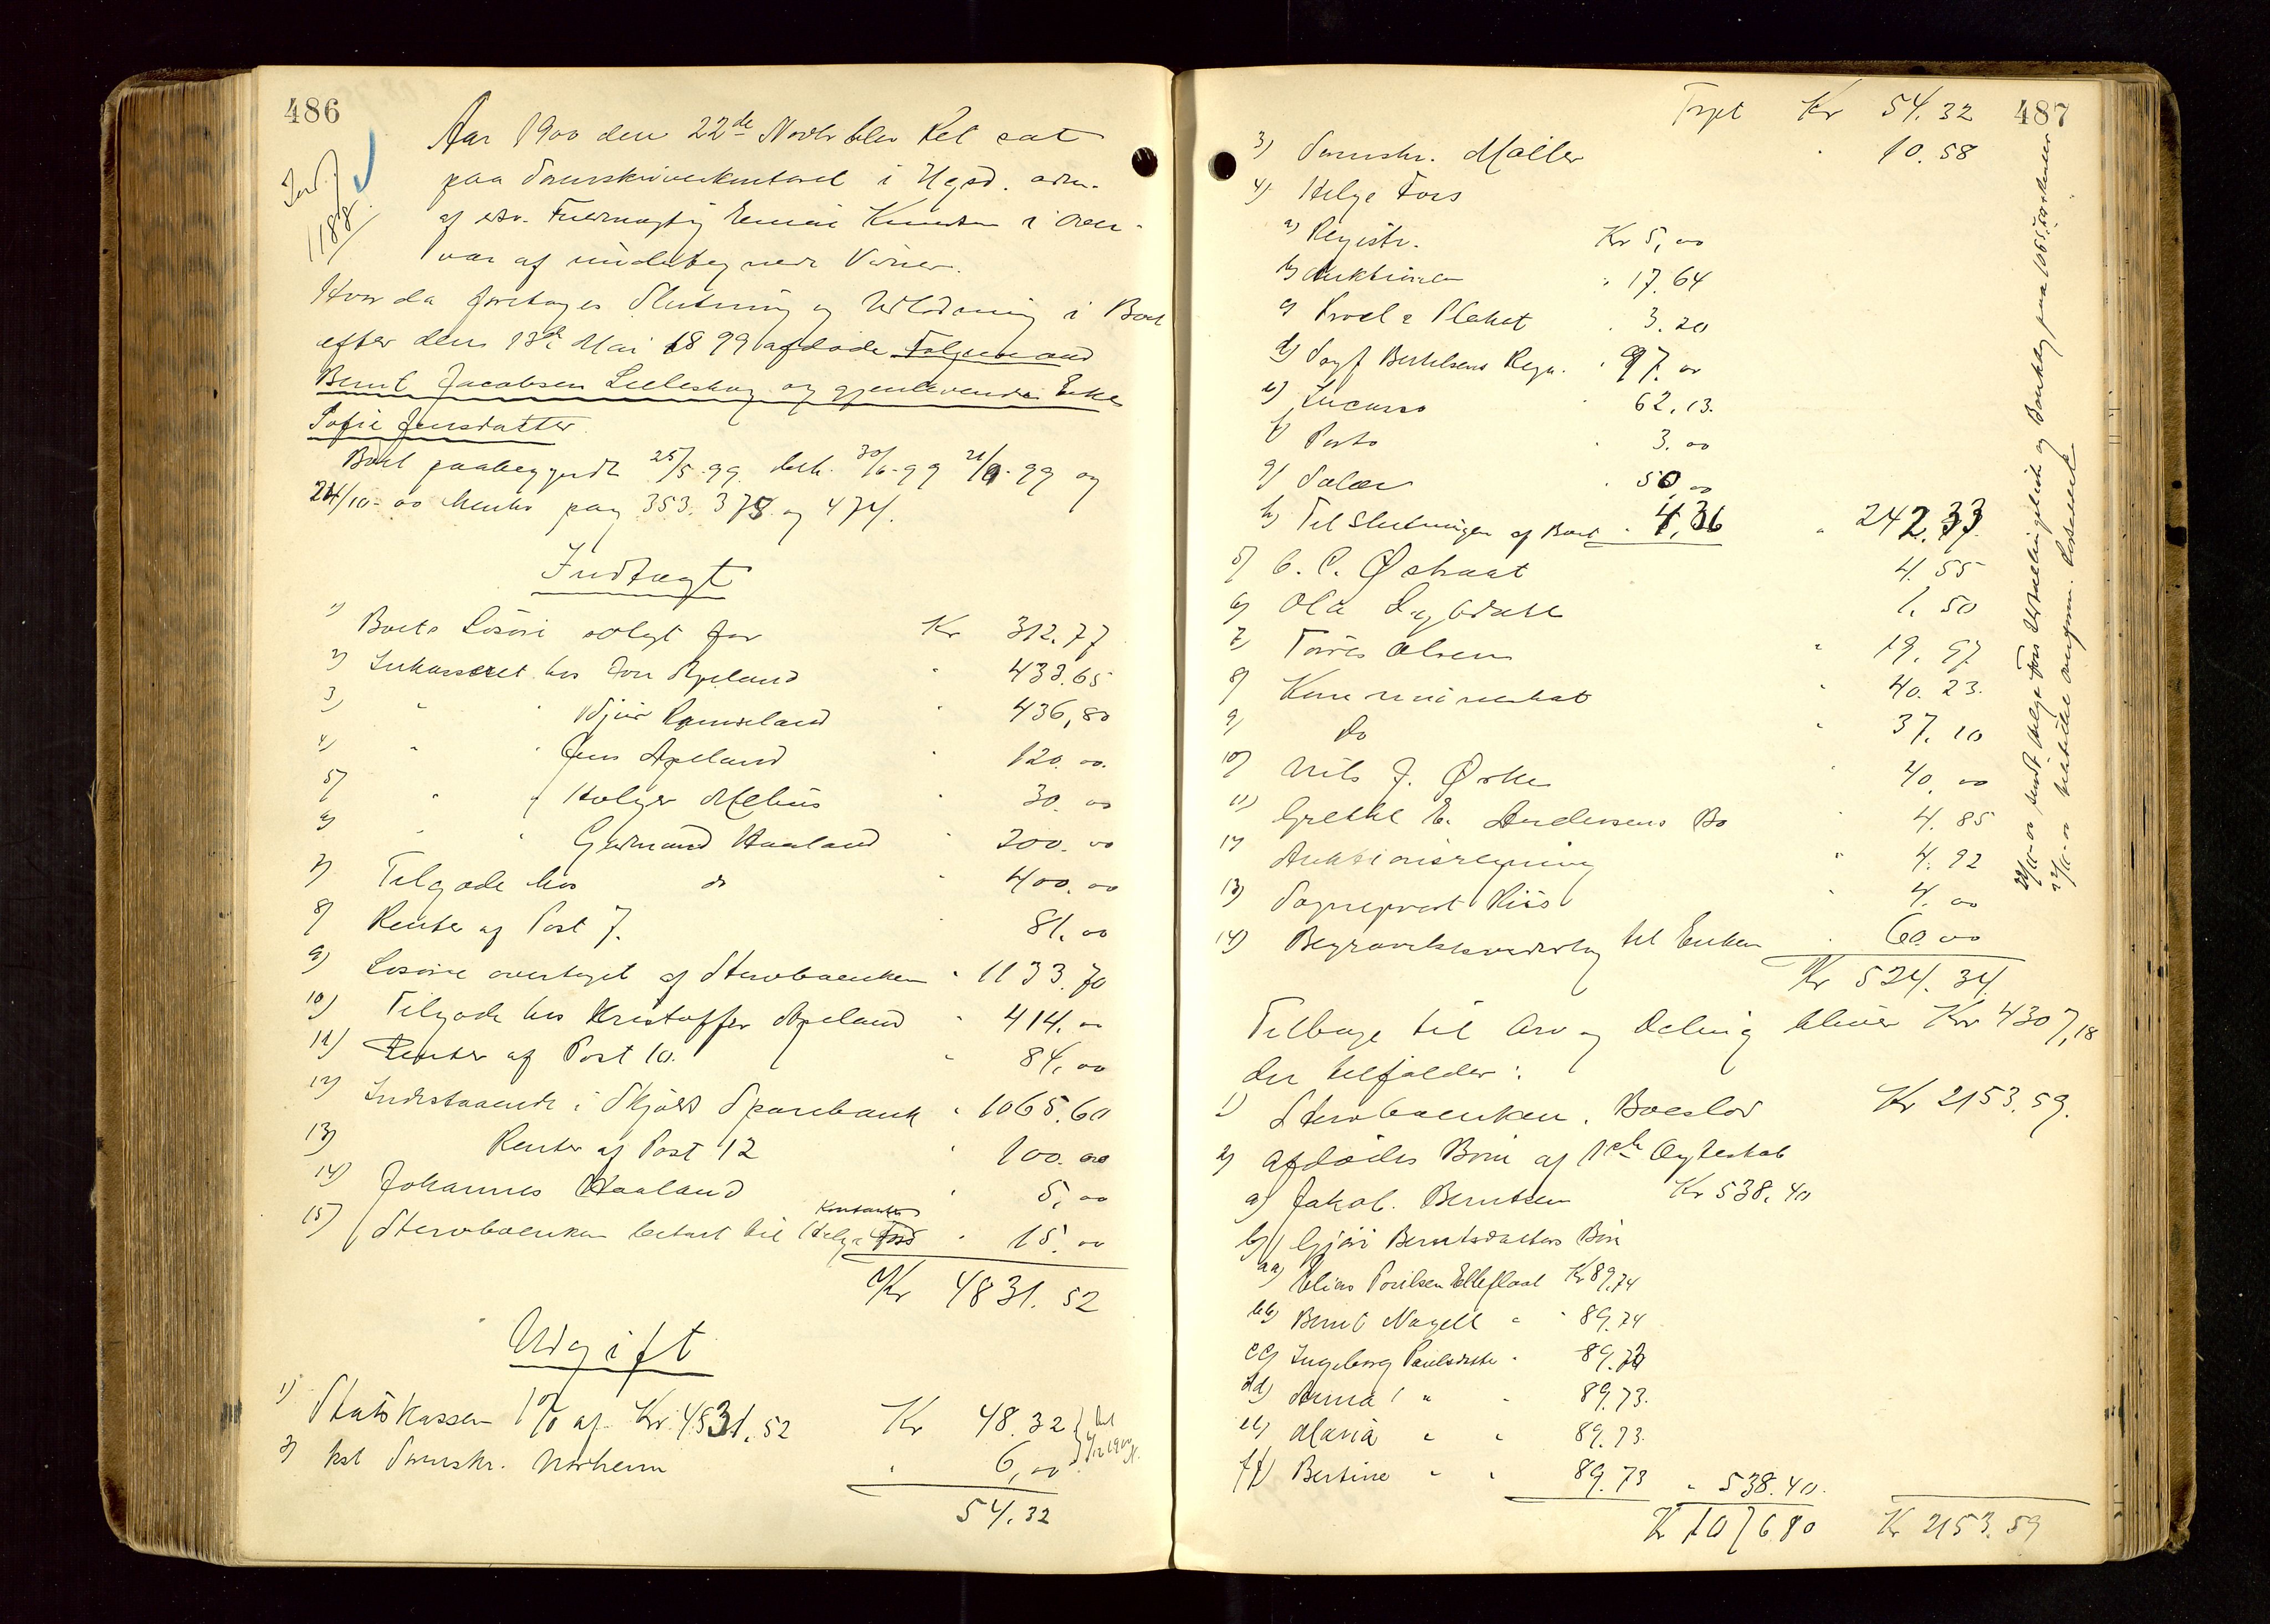 486
Aar 1900 den 22de Novbr blev Ret sat
paa Sorenskriverkontoret i Hgsd. adm.
af edsv. Fuldmægtig Knudsen i Over-
vær af undertegnede Vidner.
1188
Hvor da foretoges Slutning og Udlodning i Boet
efter den 13de Mai 1899 afdøde Følgemand
Bernt Jacobsen Lilleskog og gjenlevende Enke
Sofie Jensdatter.
Boet paabegyndt 25/5-99 beh. 30/6-99 21/9-99 og
24/10-00 herefter pag 353. 378. og 474.
Indtægt
1) Boets Løsøre solgt for Kr 312.77
2) Inkasseret hos Jon Apeland " 433.65
3) " " Ramsland " 436,80
4) " " Jens Apeland " 120.00.
5) " " Holger Mehus " 30.00
6) " " Gudmund Haaland " 200.00
7) Tilgode hos do " 400.00
8) Renter af Post 7. " 81.00
9) Løsøre overtaget af Stervboenken " 1133.70
10) Tilgode hos Kristoffer Apeland " 414.00
11) Renter af Post 10. " 84,00
12) Indestaaende i Skjold Sparebank " 1065.60
13) Renter af Post 12 " 100.00
14) Johannes Haaland " 5,00
Kontanter
15) Stervboenken betalt til Helge Fors " 15.00
Kr 4831.52
Udgift
1) Statskassen 1% af Kr. 4831.52 Kr 48.32
2) kst Sorenskr. Norheim " 6,00
54.32
487
Trpt Kr 54.32
3) Sorenskr. Møller " 10.58
4) Helge Fors
a) Registr. Kr 5,00
b) Auktionen " 17.64
c) Procl & Plakat " 3.20
d) Sagf Bertelsens Regn. " 97.00
e) Incasso " 62.13.
f) Porto " 3.00
g) Salær " 50,00
h) Til Slutningen af Boet " 4,36 " 242.33.
5) C. C. Østraat 4.55
6) Ola 1.50
7) Tørres Olsen " 19.97
8) Kommunekat " 40.23.
9) Do " 37.10
10) Nils J. Ørke " 40,00
11) Grethe E. Andersens Bo " 4.85
12) Auktionsregning " 4.92
13) Sogneprest Riis " 4.00
14) Begravelsesvederlag til Enken " 60.00
Kr 524.34.
Tilbage til Arv og Deling bliver Kr 4307,18
der tilfalder:
1) Stervboenken. Boeslod Kr 2153.59.
2) Afdødes Børn af 1ste Ægteskab
a) Jakob Berntsen Kr 538.40
b) Gjøri Berntsdatters Børn
aa) Elias Poulsen Kr 89,74
bb) Bernt Nagell " " 89.74
cc) Ingeborg Paulsdatter " 89.73
dd) Anna " " 89.73.
ee) Maria " " 89.73.
ff) Bertine " " 89.73 " 538.40.
Kr 1076 80 Kr 2153.59